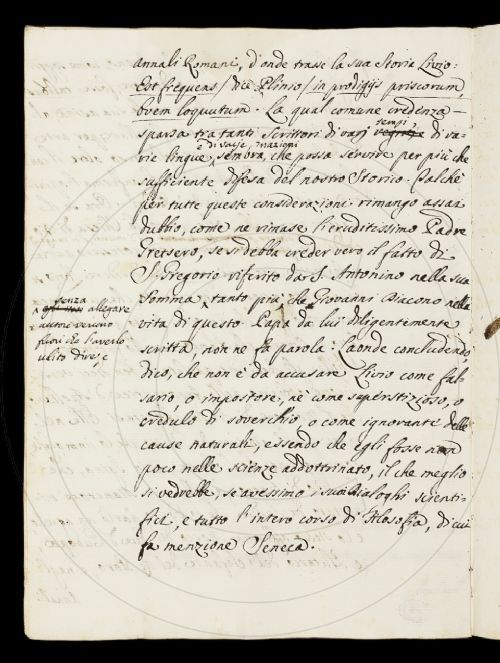 annali Romani, d'onde trasse la sua Storia Livio:
Est frequens / dice Plinio / in prodigijs priscorum
bovem loquutum. La qual comune credenza
tempi
sparsa tra tanti scrittori di varj di va-
e di varie nazioni
rie lingue, sembra, che possa servire per più che
sufficiente difesa del nostro Storico. Talché
per tutte queste considerazioni rimango assai
dubbio, come ne rimase l'eruditissimo Padre
Gretsero, se si debba creder vero il fatto di
S. Gregorio riferito da S. Antonino nella sua
Somma, tanto più che Giovanni Diacono nella
senza
allegare
autore veruno
fuori che l'averlo
udito dire; e
vita di questo Papa da lui diligentemente
scritta, non ne fa parola: Laonde concludendo
dico, che non è da accusare Livio come fal-
sario, o impostore, nè come superstizioso, o
credulo di soverchio, o come ignorante delle
cause naturali, essendo che egli fosse non
poco nelle scienze addottrinato, il che meglio
si vedrebbe, se avessimo i suoi Dialoghi scienti-
fici, e tutto l'intero corso di Filosofia, di cui
fa menzione Seneca.